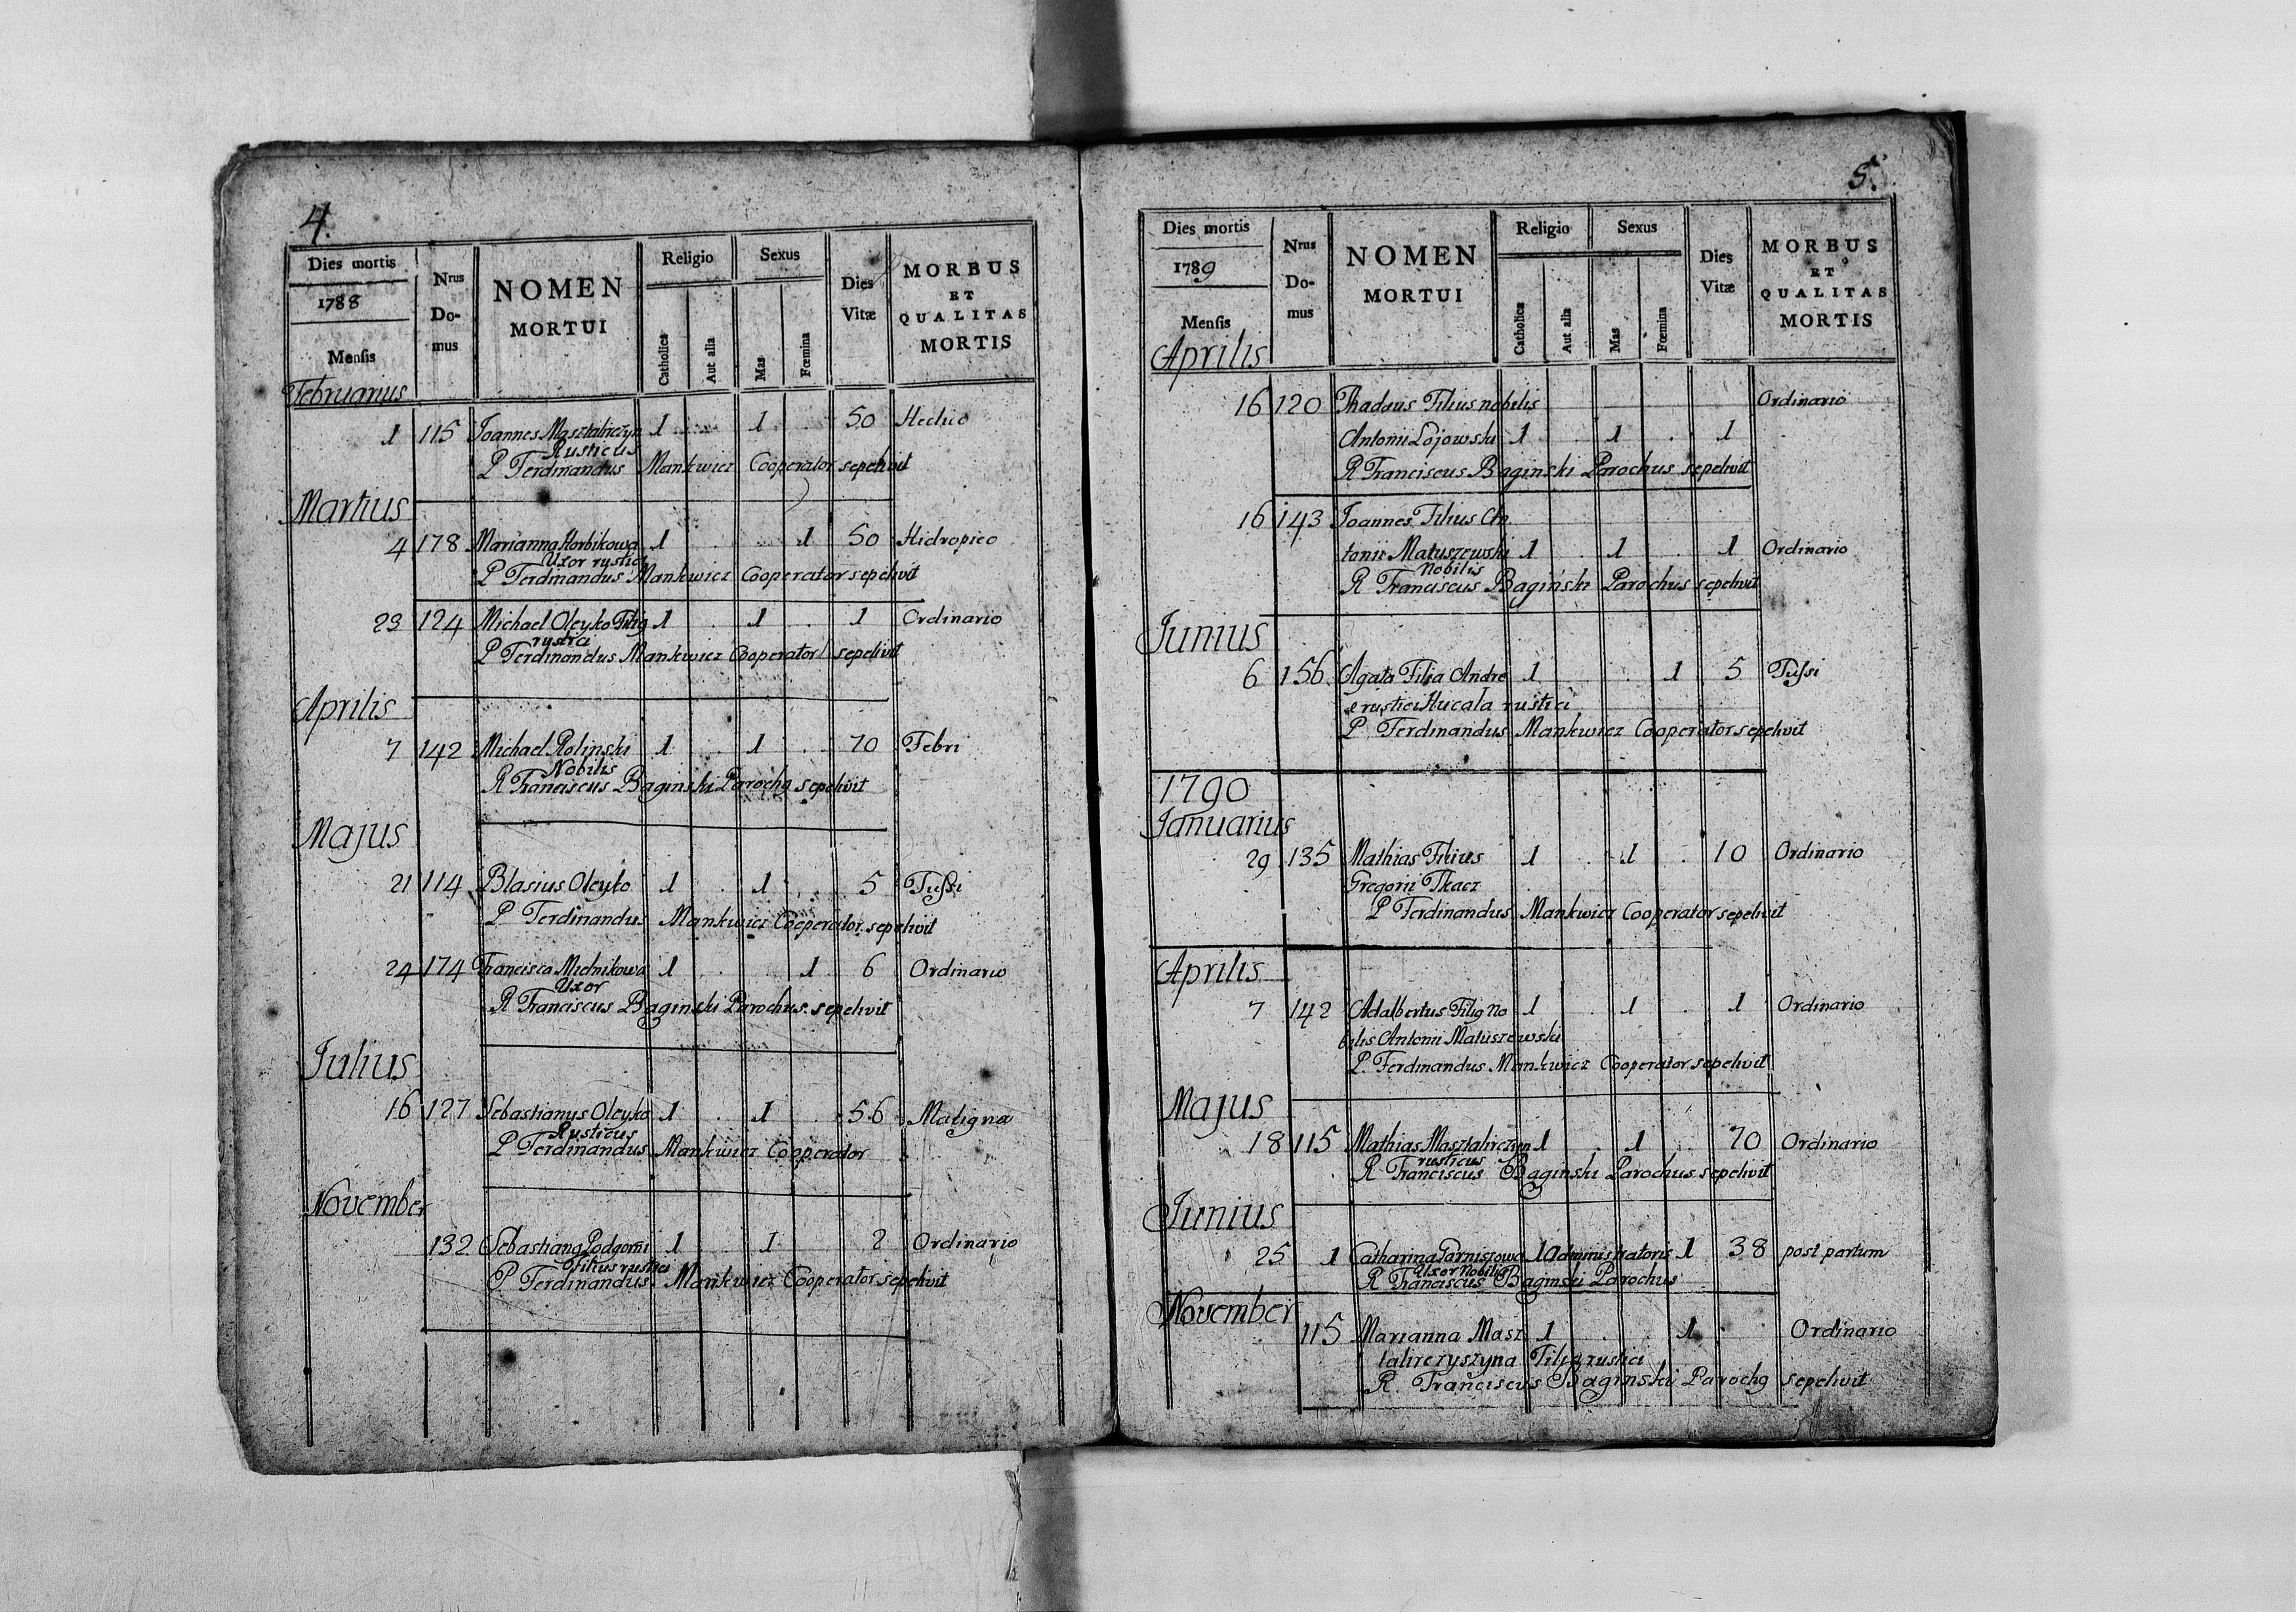 4.
Dies mortis
1788
Mensis
Nrus Domus
NOMEN MORTUI
Religio
Catholica
Aut alia
Sexus
Mas
Fœmina
Dies Vitæ
MORBUS ET QUALITAS MORTIS
Februarius
1 115 Joannes Masztalirczyn 1 1 50 Hectico
Rusticus
P Ferdinandus Mankwicz Cooperator sepelivit
Martius
4 178 Marianna Horbikowa 1 1 50 Hidropico
Uxor rustici
P Ferdinandus Mankwicz Cooperator sepelivit
23 124 Michael Oleyko Filig 1 1 1 Ordinario
rustici
P Ferdinandus Mankwicz Cooperator sepelivit
Aprilis
7 142 Michael Rolinski 1 1 70 Febri
Nobilis
R Franciscus Baginski Parochg sepelivit
Majus
21 114 Blasius Oleyko 1 1 5 Tussi
P Ferdinandus Mankwicz Cooperator sepelivit
24 174 Francisca Mielnikowa 1 1 6 Ordinario
Uxor
R Franciscus Baginski Parochus sepelivit
Julius
16 127 Sebastianus Oleyko 1 1 56 Maligna
Rusticus
P Ferdinandus Mankwicz Cooperator
November
132 Sebastiang Podgorni 1 1 2 Ordinario
Filius rustici
P. Ferdinandus Mankwicz Cooperator sepelivit
5.
Dies mortis
1789
Mensis
Nrus Domus
NOMEN MORTUI
Religio
Catholica
Aut alia
Sexus
Mas
Fœmina
Dies Vitæ
MORBUS ET QUALITAS MORTIS
Aprilis
16 120 Thadeus Filius nobilis Ordinario
Antonii Łojowski 1 1 1
R Franciscus Baginski Parochus sepelivit
16 143 Joannes Filius An
tonii Matuszewski 1 1 1 Ordinario
Nobilis
R Franciscus Bagiński Parochus sepelivit
Junius
6 156 Agata Filia Andre 1 1 5 Tussi
e rustici Hucala rustici
P Ferdinandus Mankwicz Cooperator sepelivit
1790
Januarius
29 135 Mathias Filius 1 1 10 Ordinario
Gregorii Tkacz
P Ferdinandus Mankwicz Cooperator sepelivit
Aprilis
7 142 Adalbertus Filig No 1 1 1 Ordinario
bilis Antonii Matuszewski
P. Ferdinandus Mankwicz Cooperator sepelivit
Majus
18 115 Mathias Masztalirczyn 1 1 70 Ordinario
rusticus
R Franciscus Baginski Parochus sepelivit
Junius
25 1 Catharina Garniszowa 1 Administratoris 1 38 post partum
Uxor Nobilis
R Franciscus Baginski Parochus
November
115 Marianna Masz 1 1 Ordinario
talirczyszyna Filia rustici
R. Franciscus Baginski Parochg sepelivit